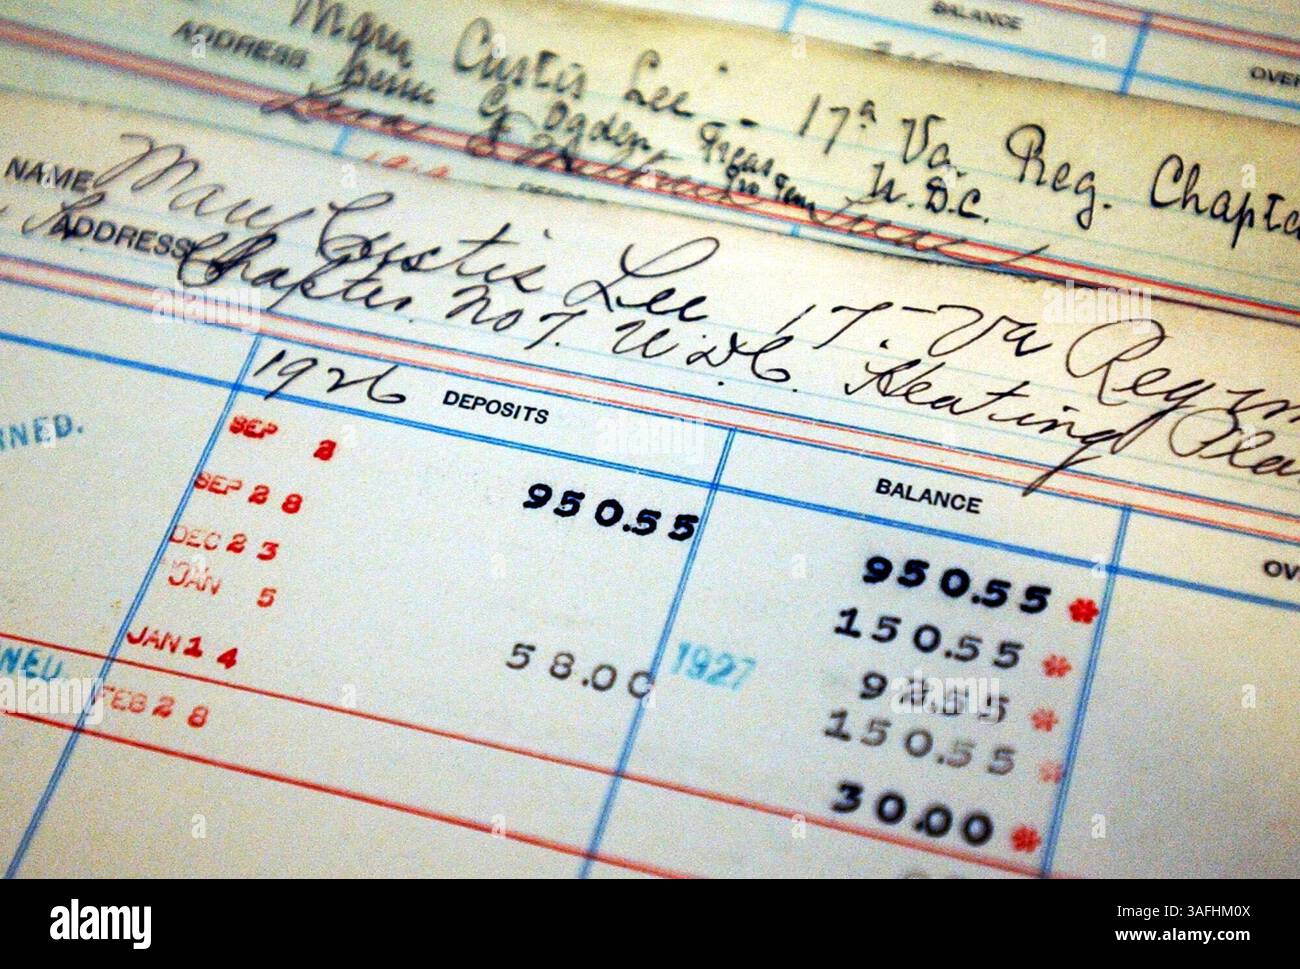 BALANCE
OVER
ADDRESS
Mary Custis Lee - 17ª Va. Reg. Chapter
G. Ogden Treas U.D.C.
NAME Mary Custis Lee 17-Va Regim
ADDRESS Chapter. No 7. U.D.C. Heating Pla
1926 DEPOSITS
BALANCE
OV
NED.
SEP 2
SEP 28 950.55 950.55 *
DEC 23 150.55 *
JAN 5 92.55 *
JAN 14 58.00 1927 150.55 *
NED.
FEB 28 30.00 *
alamy
Image ID: 3AFHM0X
www.alamy.com